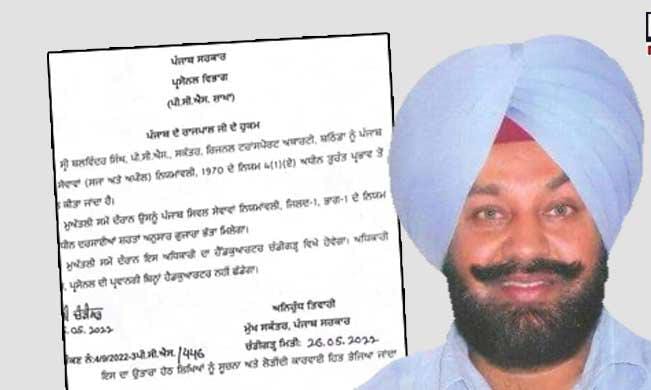 ਪੰਜਾਬ ਸਰਕਾਰ
ਪ੍ਰਸੋਨਲ ਵਿਭਾਗ
(ਪੀ.ਸੀ.ਐਸ. ਸ਼ਾਖਾ)
ਪੰਜਾਬ ਦੇ ਰਾਜਪਾਲ ਜੀ ਦੇ ਹੁਕਮ
ਸ੍ਰੀ ਬਲਵਿੰਦਰ ਸਿੰਘ, ਪੀ.ਸੀ.ਐਸ., ਸਕੱਤਰ, ਰਿਜਨਲ ਟਰਾਂਸਪੋਰਟ ਅਥਾਰਟੀ, ਬਠਿੰਡਾ ਨੂੰ ਪੰਜਾਬ
ਸੇਵਾਵਾਂ (ਸਜਾ ਅਤੇ ਅਪੀਲ) ਨਿਯਮਾਵਲੀ, 1970 ਦੇ ਨਿਯਮ 4(1)(ਏ) ਅਧੀਨ ਤੁਰੰਤ ਪ੍ਰਭਾਵ ਤੋਂ
ਕੀਤਾ ਜਾਂਦਾ ਹੈ।
ਮੁਅੱਤਲੀ ਸਮੇਂ ਦੌਰਾਨ ਉਸਨੂੰ ਪੰਜਾਬ ਸਿਵਲ ਸੇਵਾਵਾਂ ਨਿਯਮਾਵਲੀ, ਜਿਲਦ-1, ਭਾਗ-1 ਦੇ ਨਿਯਮ
ਦਰਸਾਈਆਂ ਸ਼ਰਤਾਂ ਅਨੁਸਾਰ ਗੁਜਾਰਾ ਭੱਤਾ ਮਿਲੇਗਾ।
ਮੁਅੱਤਲੀ ਸਮੇਂ ਦੌਰਾਨ ਇਸ ਅਧਿਕਾਰੀ ਦਾ ਹੈੱਡਕੁਆਰਟਰ ਚੰਡੀਗੜ੍ਹ ਵਿਖੇ ਹੋਵੇਗਾ। ਅਧਿਕਾਰੀ
ਪ੍ਰਸੋਨਲ ਦੀ ਪ੍ਰਵਾਨਗੀ ਬਿਨ੍ਹਾਂ ਹੈਡਕੁਆਰਟਰ ਨਹੀਂ ਛੱਡੇਗਾ।
ਚੰਡੀਗੜ੍ਹ
.05.2022
ਅਨਿਰੁੱਧ ਤਿਵਾਰੀ
ਮੁੱਖ ਸਕੱਤਰ, ਪੰਜਾਬ ਸਰਕਾਰ
ਚੰਡੀਗੜ੍ਹ ਮਿਤੀ: 26.05.2022
ਕਣ ਨੰ:4/9/2022-3ਪੀ.ਸੀ.ਐਸ./446
ਇਸ ਦਾ ਉਤਾਰਾ ਹੇਠ ਲਿਖਿਆਂ ਨੂੰ ਸੂਚਨਾ ਅਤੇ ਲੋੜੀਂਦੀ ਕਾਰਵਾਈ ਹਿਤ ਭੇਜਿਆ ਜਾਂਦਾ